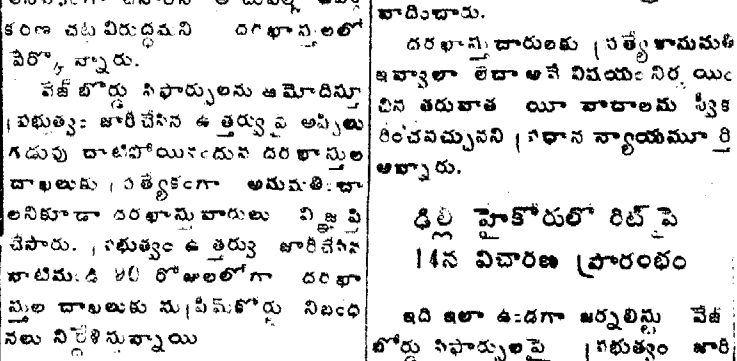 కరణ చట విరుద్ధమని దరఖాస్తులలో
పేర్కొన్నారు.
వేజ్ బోర్డు సిఫార్సులను ఆమోదిస్తూ
ప్రభుత్వం జారీచేసిన ఉత్తర్వుపై అప్పీలు
గడువు దాటిపోయినందున దరఖాస్తుల
దాఖలుకు ప్రత్యేకంగా అనుమతించా
లనికూడా దరఖాస్తుదారులు విజ్ఞప్తి
చేసారు. ప్రభుత్వం ఉత్తర్వు జారీచేసిన
నాటినుండి 90 రోజులలోగా దరఖా
స్తుల దాఖలుకు సుప్రీమ్‌కోర్టు నిబంధ
నలు నిర్దేశిస్తున్నాయి
వాదించారు.
దరఖాస్తుదారులకు ప్రత్యేకానుమతి
ఇవ్వాలా లేదా అనే విషయం నిర్ణయిం
చిన తరువాత యీ వాదాలను స్వీక
రించవచ్చునని ప్రధాన న్యాయమూర్తి
అన్నారు.
ఢిల్లీ హైకోరులో రిట్‌పై
14న విచారణ ప్రారంభం
ఇది ఇలా ఉండగా జర్నలిస్టు వేజ్
బోర్డు సిఫార్సులపై ప్రభుత్వం జారీ